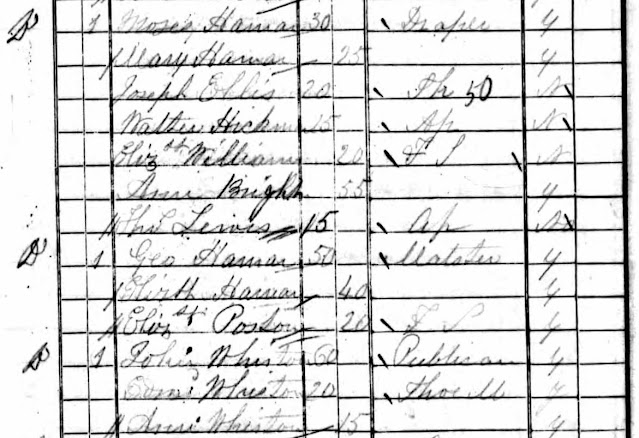 1 Moses Haman 30 Draper y
Mary Haman 25 y
Joseph Ellis 20 Sh 50 N
Walter Hickm 15 Ap N
Eliz th Williams 20 F S N
Ann Bright 55 y
Lewis 15 Ap N
1 Geo Haman 50 Malster y
Elizth Haman 40 y
Eliz th Poston 20 F S y
1 John Whiston 60 Publican y
Whiston 20 Shoe M y
Ann Whiston 15 y